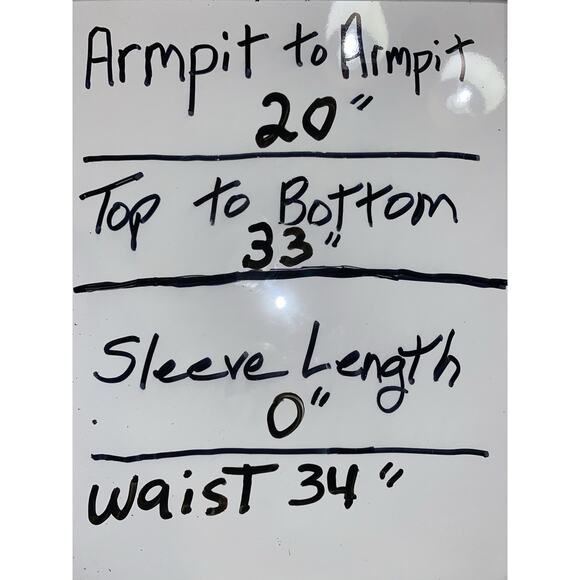 Armpit to Armpit
20"
Top to Bottom
33"
Sleeve Length
0"
waist 34"